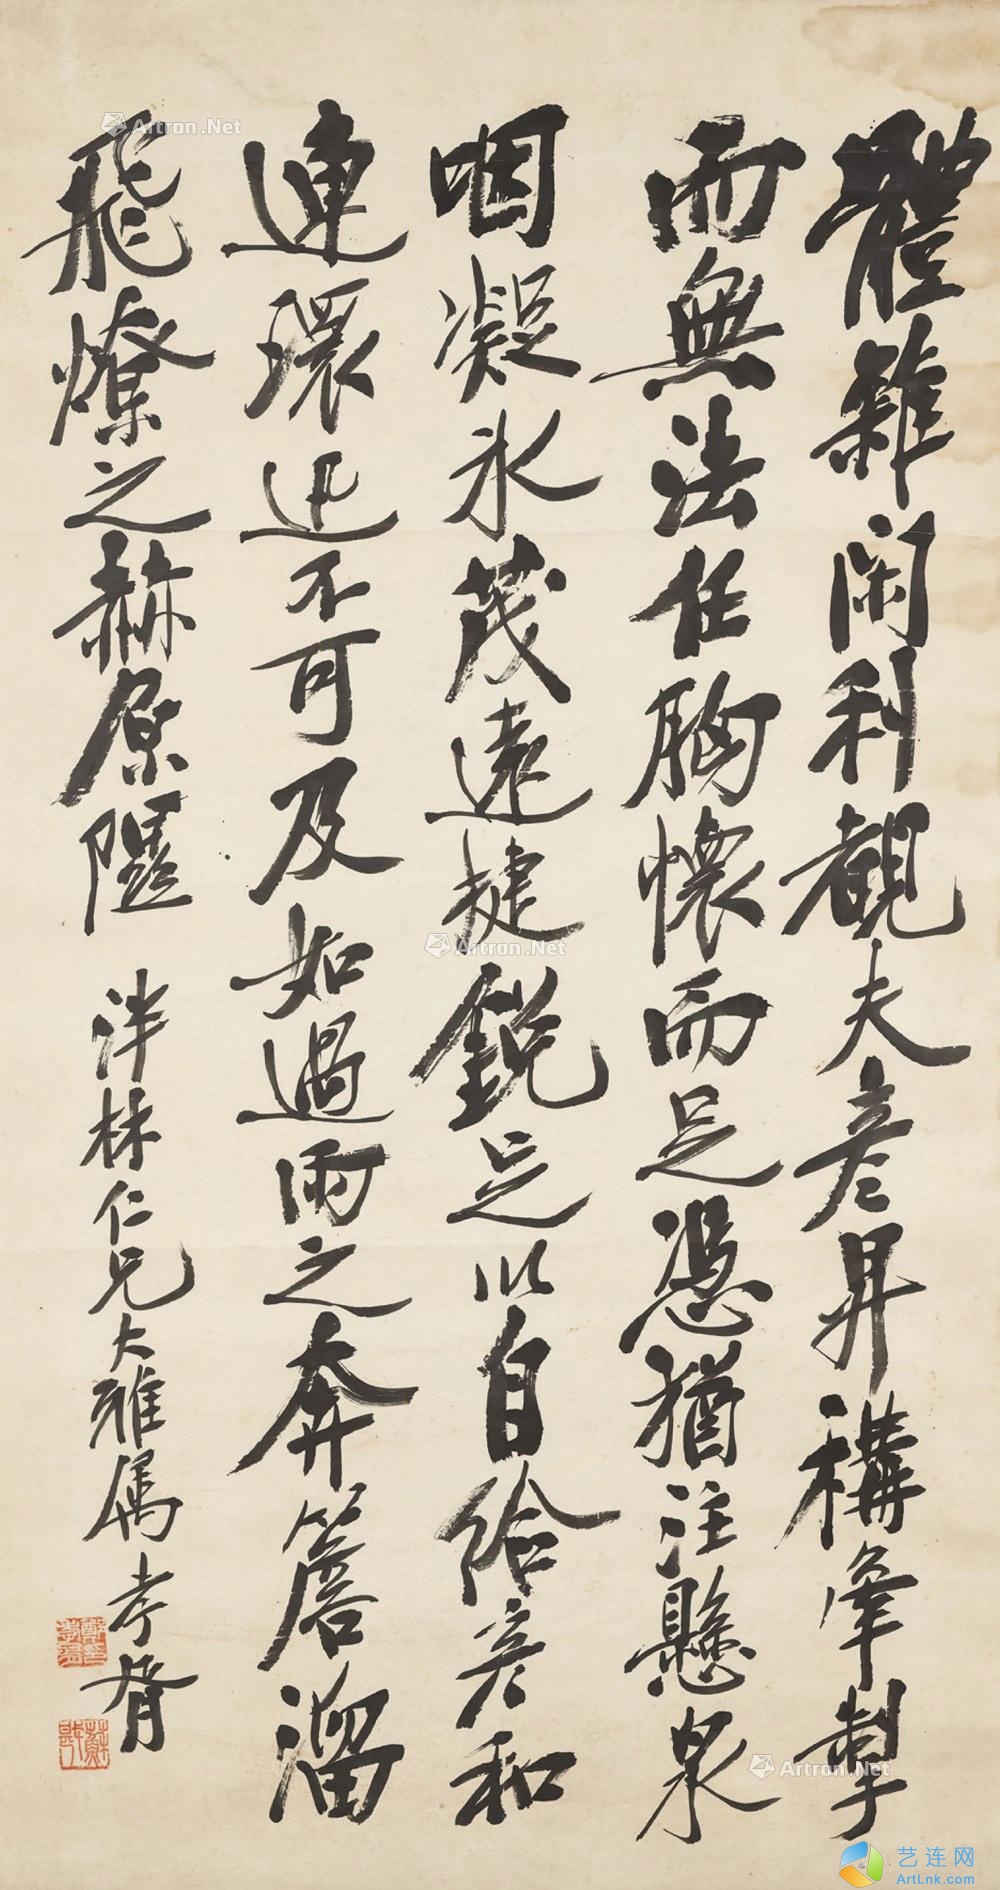 體雜閑利觀夫彥昇構牽掣
而無法任胸懷而足憑猶注懸泉
咽凝冰茂遠捷銳足以自給彥和
連環迅不可及如過雨之奔簷溜
飛燎之赫原隰 泮林仁兄大雅属 孝胥
鄭孝胥
蘇戡
Artron.Net
Artron.Net
Artron.Net
艺连网
ArtLnk.com